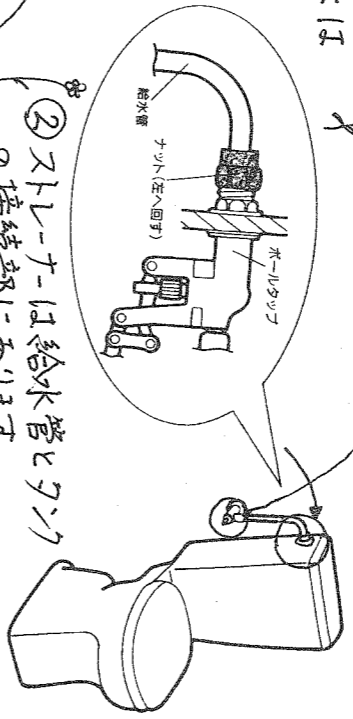 には
給水管
ナット(左へ回す)
ボールタップ
②ストレーナーは給水管とタンク
の接続部にあります